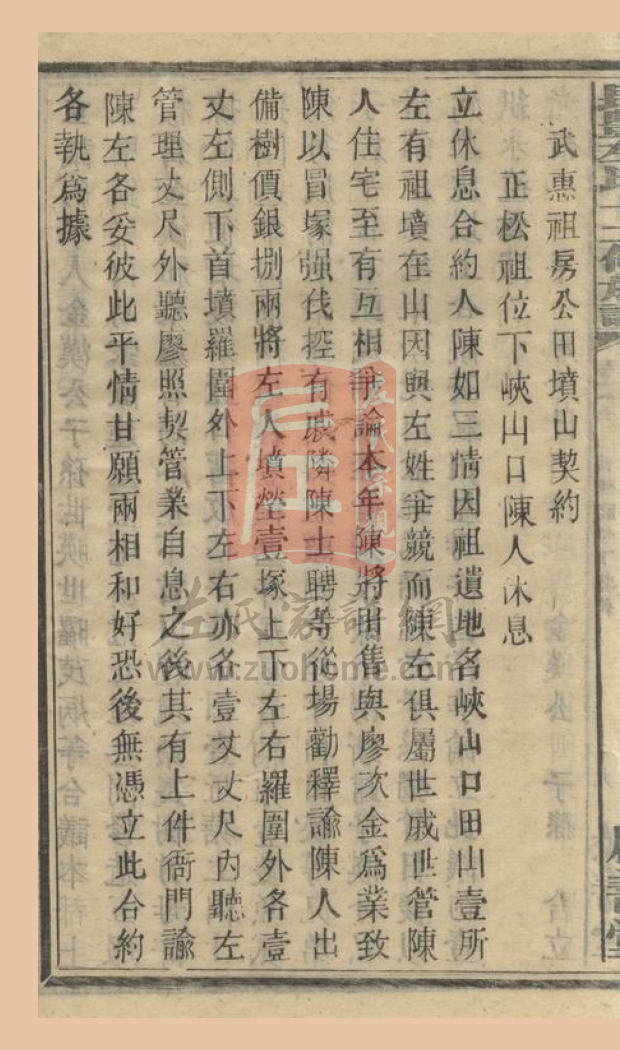 武惠祖房公田墳山契約
正松祖位下峽山口陳人休息
立休息合約人陳如三情因祖遺地名峽山口田山壹所
左有祖墳在山因與左姓爭競而陳左俱屬世戚世管陳
人住宅至有互相爭論本年陳將田售與廖次金爲業致
陳以冒塚强伐控有戚隣陳士聘等從場勸釋諭陳人出
備樹價銀捌兩將左人墳塋壹塚上下左右羅圍外各壹
丈左側下首墳羅圍外上下左右亦各壹丈丈尺內聽左
管理丈尺外聽廖照契管業自息之後其有上件衙門諭
陳左各妥彼此平情甘願兩相和好恐後無憑立此合約
各執爲據
左氏家譜網
www.zuohome.com